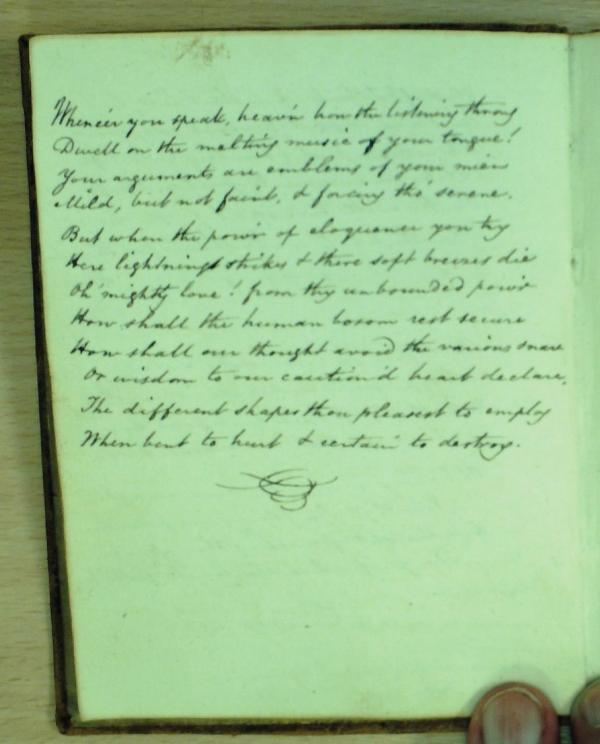 Whene'er you speak, heav'n how the listening throng
Dwell on the melting music of your tongue!
Your arguments are emblems of your mien
Mild, but not faint, & forcing tho' serene.
But when the pow'r of eloquence you try
Here lightning strikes & there soft breezes die
Oh' mighty love! from thy unbounded pow'r
How shall the human bosom rest secure
How shall our thought avoid the various snare
Or wisdom to our caution'd heart declare,
The different shapes thou pleasest to employ
When bent to hurt & certain to destroy.